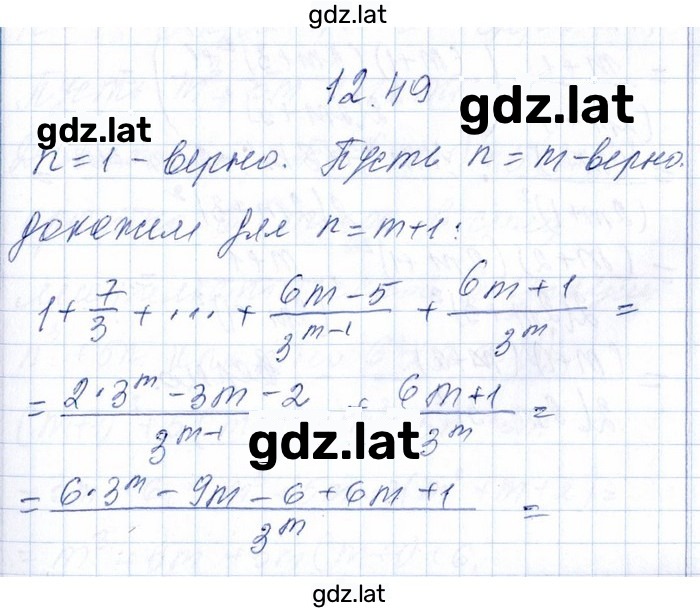 gdz.lat
12.49
gdz.lat
gdz.lat
n = 1 – верно. Пусть n = m – верно.
докажем для n = m+1:
1 + 7/3 + ... + (6m – 5)/3^(m–1) + (6m + 1)/3^m =
= (2·3^m – 3m – 2)/3^(m–1) + (6m+1)/3^m =
gdz.lat
= (6·3^m – 9m – 6 + 6m + 1)/3^m =
gdz.lat